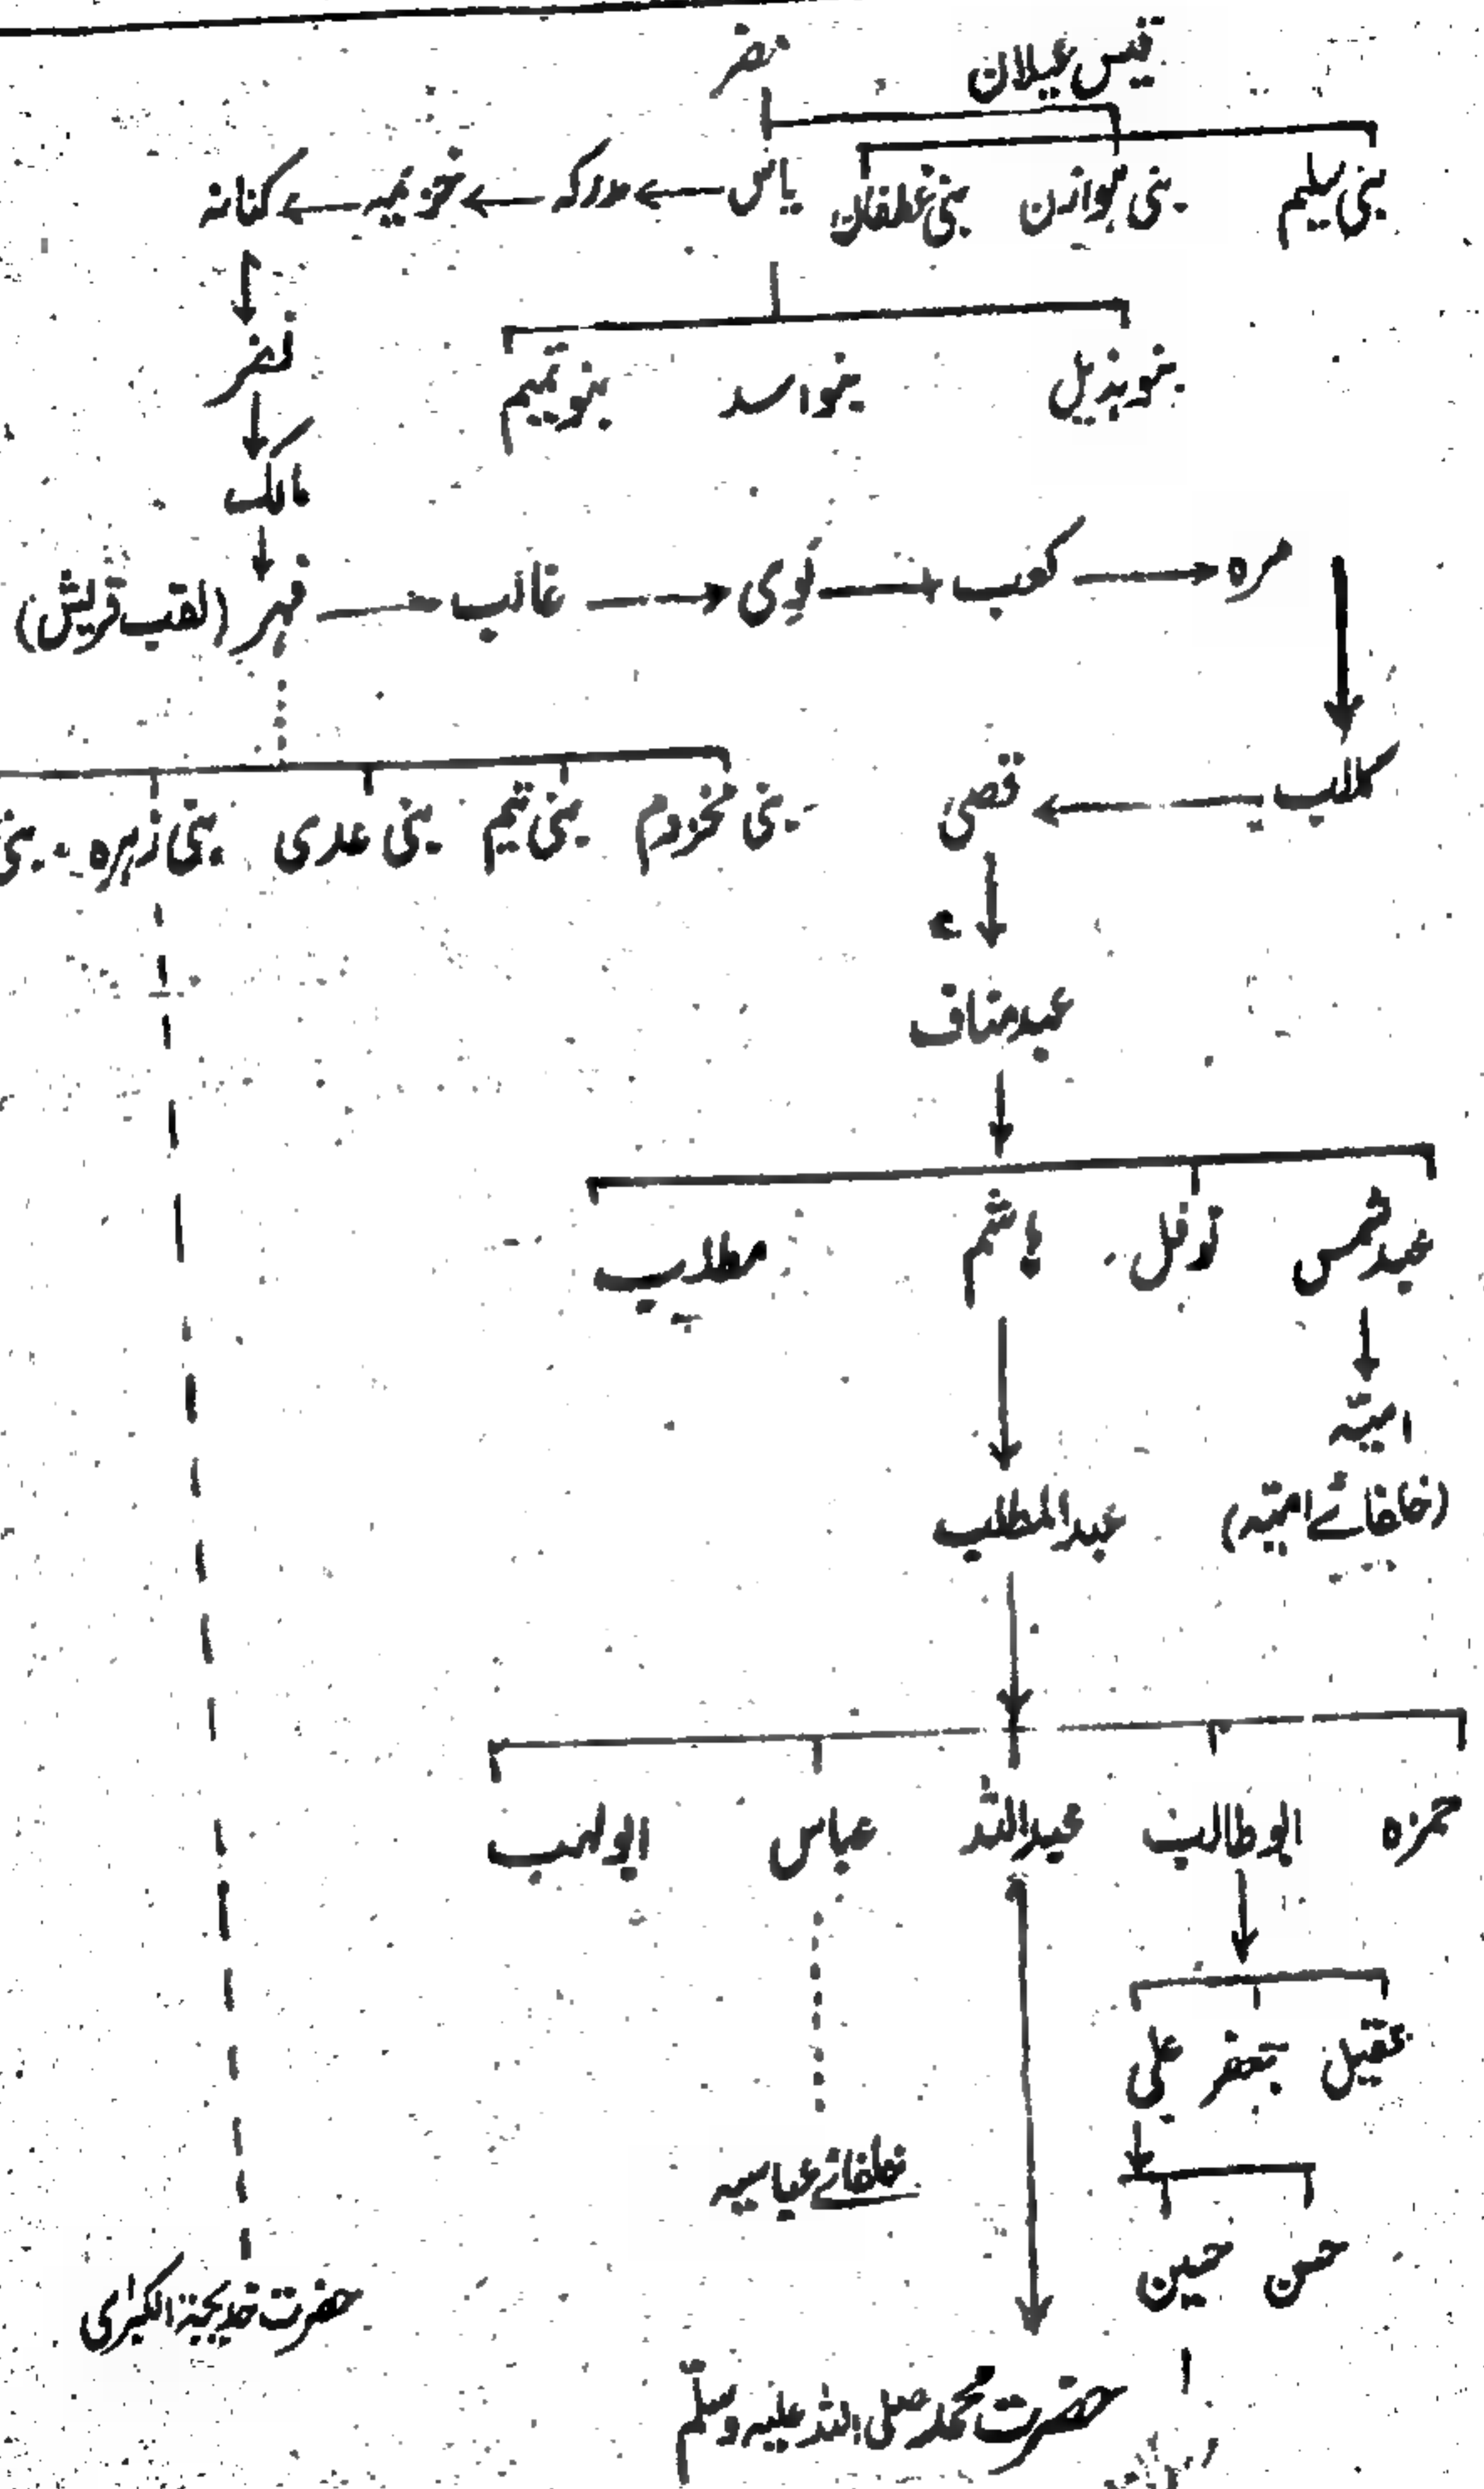 قیس عیلان
مضر
بنی سلیم بنی ہوازن بنی غطفان یاس مدرکہ خزیمہ کنانہ
نضر
بنو ہذیل بنو اسد بنو تمیم
مالک
فہر (لقب قریش) غالب لوی کعب مرہ
کلاب قصی
بنی مخزوم بنی تیم بنی عدی بنی زہرہ بنی
عبد مناف
عبد شمس نوفل ہاشم مطلب
امیّہ
(خلفائے امیّہ) عبدالمطلب
حمزہ ابو طالب عبداللہ عباس ابو لہب
عقیل جعفر علی
خلفائے عباسیہ
حسن حسین
حضرت خدیجۃ الکبرٰی
حضرت محمد صلی اللہ علیہ وسلّم